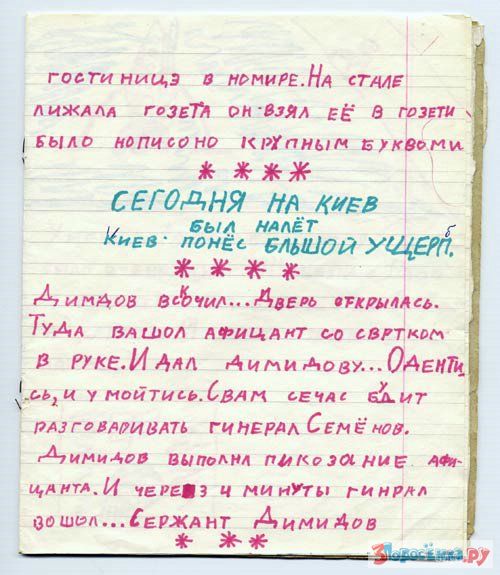 гостиницэ в номире. На стале
лижала гозета он взял её в гозети
было нописоно крупным буквоми
* * * *
СЕГОДНЯ НА КИЕВ
БЫЛ НАЛЁТ
КИЕВ ПОНЁС БЛЬШОЙ УЩЕРП.
б
* * * *
Димдов вскочил... Дверь открылась.
Туда вашол афицант со свртком
в руке. И дал димидову... Оденти
сь, и умойтись. Свам сечас будит
разговаривать гинерал Семёнов.
Димидов выполнл пикозание афи-
цанта. И через 4 минуты гинрал
вошол... Сержант Димидов
* * *
3Поросёнка.ру